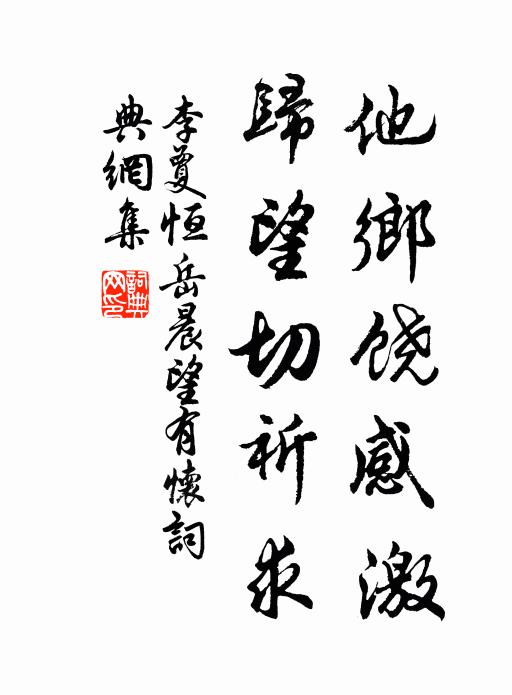 他鄉饶感激
歸望切祈求
李夐恒岳晨望有懷詞
典網集
詞典
网印